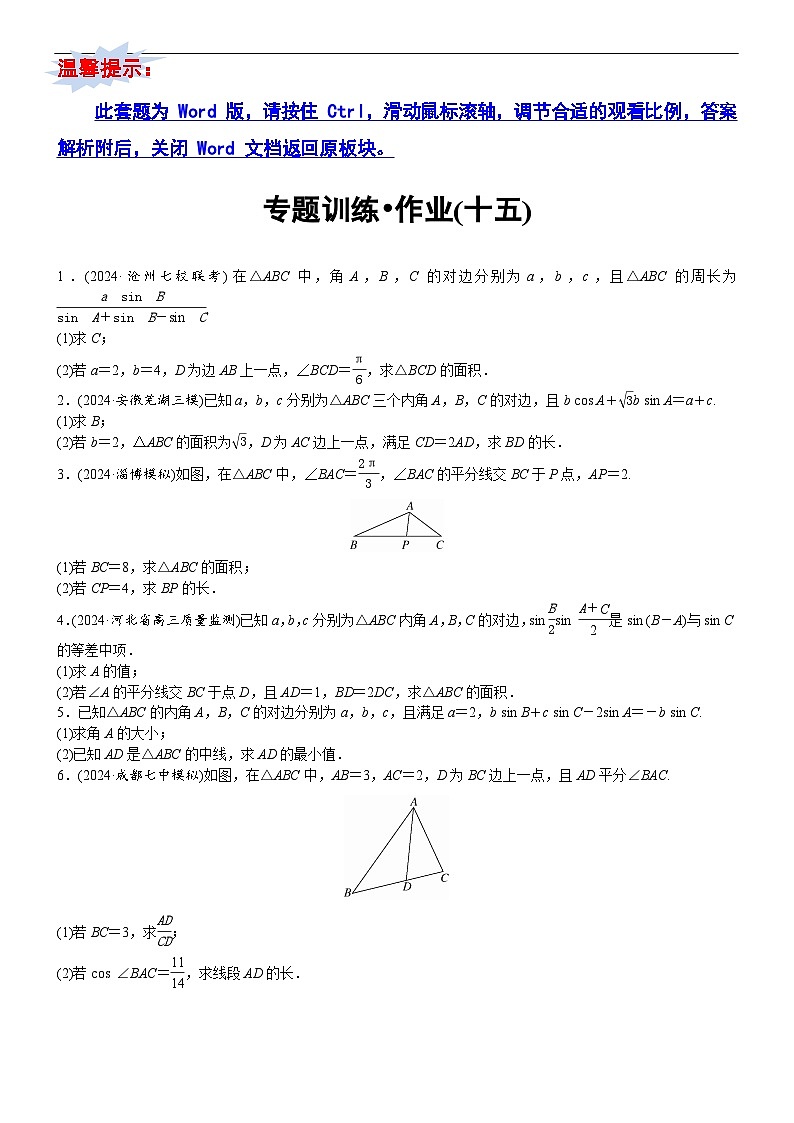 温馨提示：
此套题为 Word 版，请按住 Ctrl，滑动鼠标滚轴，调节合适的观看比例，答案
解析附后，关闭 Word 文档返回原板块。
专题训练•作业(十五)
1．(2024·沧州七校联考)在△ABC 中，角 A，B，C 的对边分别为 a，b，c，且△ABC 的周长为
a sin B/(sin A＋sin B－sin C)
(1)求 C；
(2)若 a＝2，b＝4，D 为边 AB 上一点，∠BCD＝π/6，求△BCD 的面积．
2．(2024·安徽芜湖三模)已知 a，b，c 分别为△ABC 三个内角 A，B，C 的对边，且 b cos A＋√3b sin A＝a＋c.
(1)求 B；
(2)若 b＝2，△ABC 的面积为√3，D 为 AC 边上一点，满足 CD＝2AD，求 BD 的长．
3．(2024·淄博模拟)如图，在△ABC 中，∠BAC＝2π/3，∠BAC 的平分线交 BC 于 P 点，AP＝2.
A
B P C
(1)若 BC＝8，求△ABC 的面积；
(2)若 CP＝4，求 BP 的长．
4.(2024·河北省高三质量监测)已知 a,b,c 分别为△ABC 内角 A,B,C 的对边,sin B/2 sin (A＋C)/2 是 sin (B－A)与 sin C
的等差中项．
(1)求 A 的值；
(2)若∠A 的平分线交 BC 于点 D，且 AD＝1，BD＝2DC，求△ABC 的面积．
5．已知△ABC 的内角 A，B，C 的对边分别为 a，b，c，且满足 a＝2，b sin B＋c sin C－2sin A＝－b sin C.
(1)求角 A 的大小；
(2)已知 AD 是△ABC 的中线，求 AD 的最小值．
6．(2024·成都七中模拟)如图，在△ABC 中，AB＝3，AC＝2，D 为 BC 边上一点，且 AD 平分∠BAC.
A
B D C
(1)若 BC＝3，求AD/CD；
(2)若 cos ∠BAC＝11/14，求线段 AD 的长．